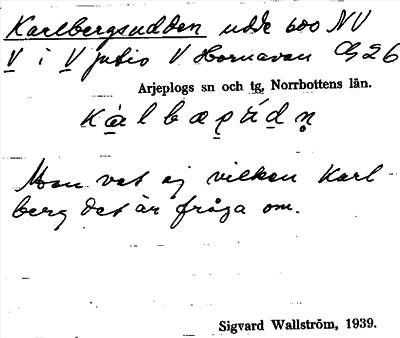 Karlbergsudden udde 600 NV
V i V Jutis V Hornavan G26
Arjeplogs sn och tg, Norrbottens län.
Man vet ej vilken Karl
berg det är fråga om.
Sigvard Wallström, 1939.